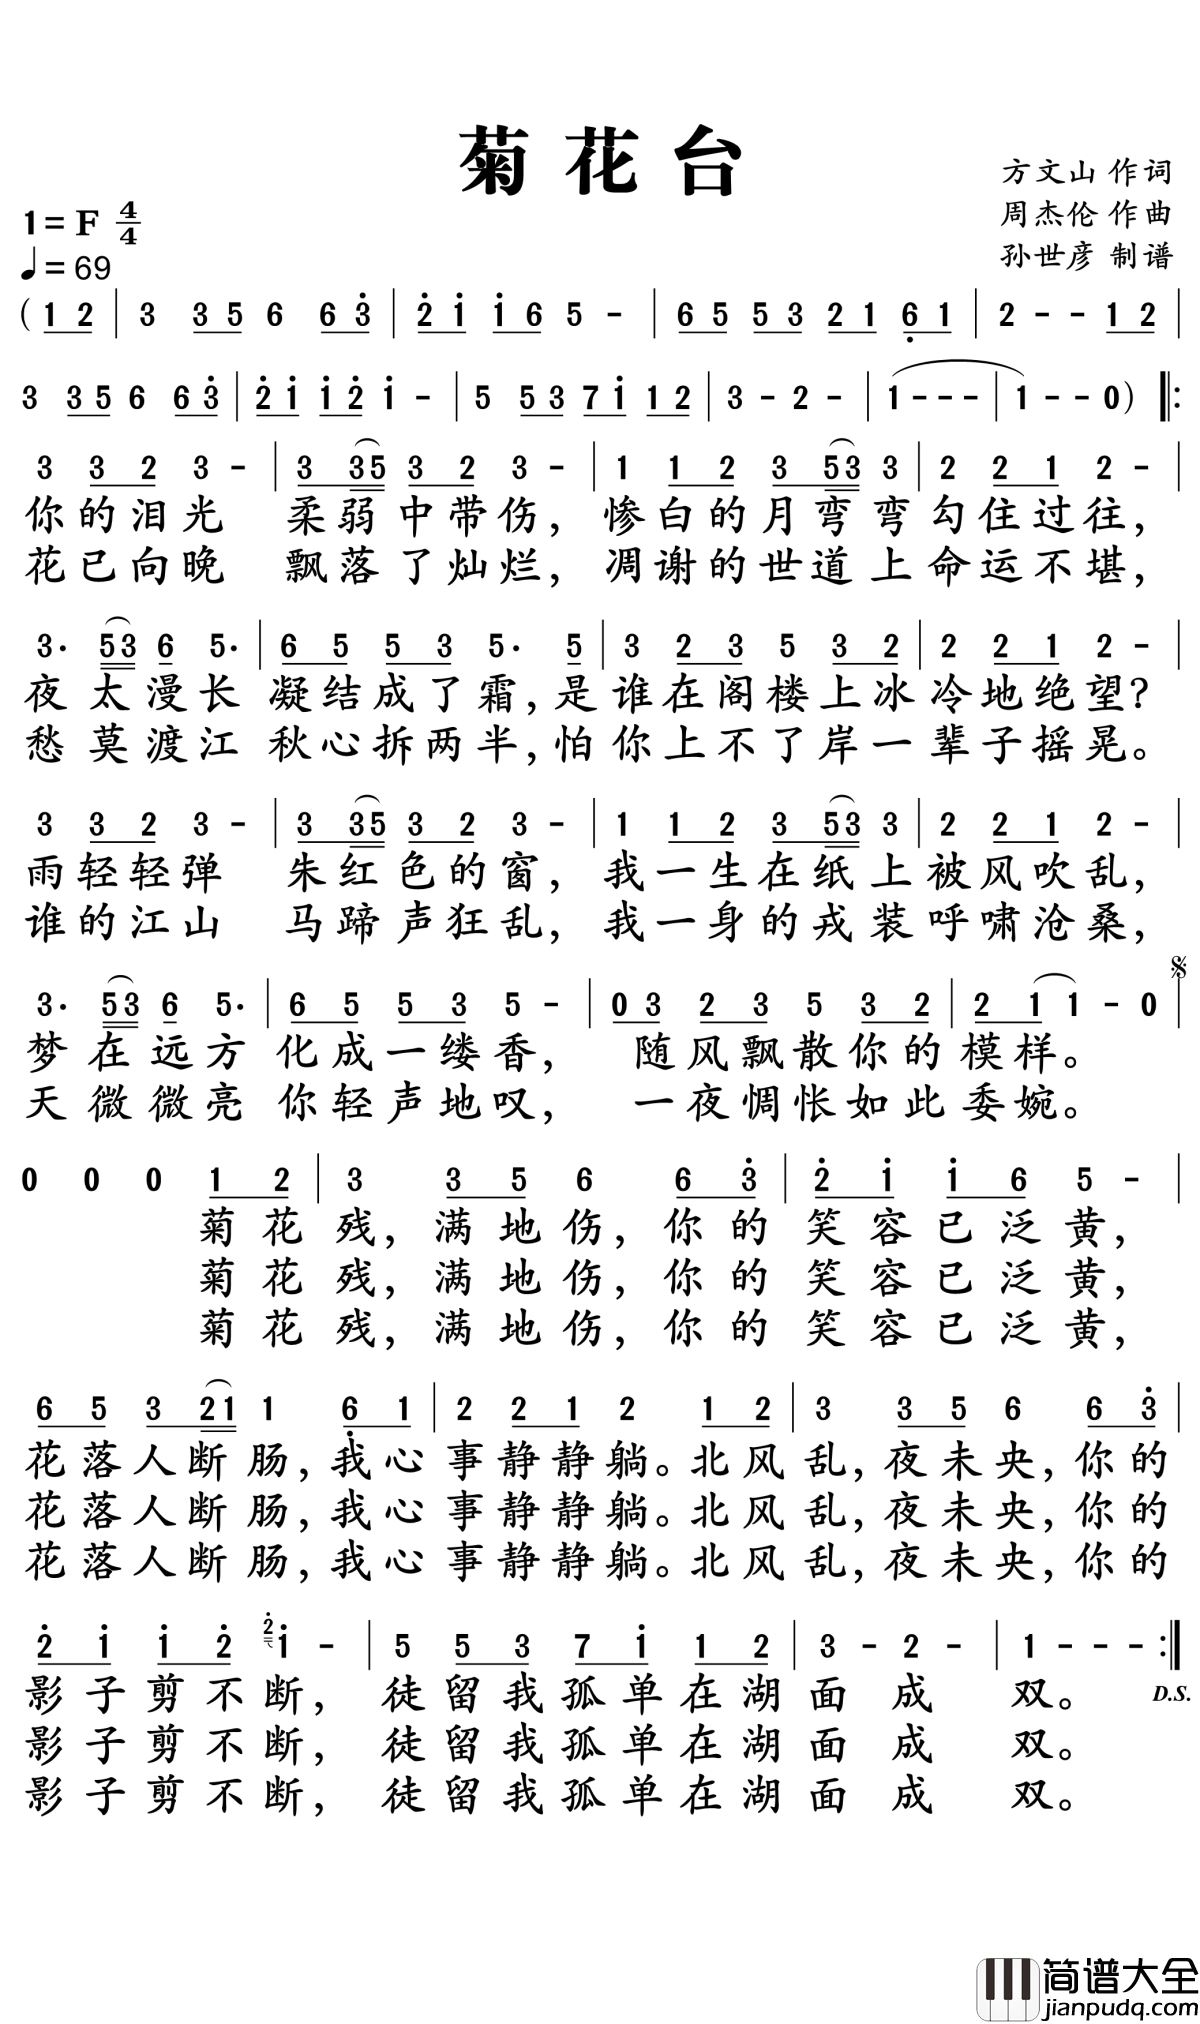 菊花台
方文山 作词
周杰伦 作曲
孙世彦 制谱
1=F 4/4
♩=69
( 1 2 | 3 3 5 6 6 3̇ | 2̇ 1̇ 1̇ 6 5 - | 6 5 5 3 2 1 6̣ 1 | 2 - - 1 2 |
3 3 5 6 6 3̇ | 2̇ 1̇ 1̇ 2̇ 1̇ - | 5 5 3 7 1̇ 1 2 | 3 - 2 - | 1 - - - | 1 - - 0 ) |:
3 3 2 3 - | 3 3 5 3 2 3 - | 1 1 2 3 5 3 3 | 2 2 1 2 - |
你的泪光 柔弱中带伤，惨白的月弯弯勾住过往，
花已向晚 飘落了灿烂，凋谢的世道上命运不堪，
3· 5 3 6 5· | 6 5 5 3 5· 5 | 3 2 3 5 3 2 | 2 2 1 2 - |
夜太漫长 凝结成了霜，是谁在阁楼上冰冷地绝望？
愁莫渡江 秋心拆两半，怕你上不了岸一辈子摇晃。
3 3 2 3 - | 3 3 5 3 2 3 - | 1 1 2 3 5 3 3 | 2 2 1 2 - |
雨轻轻弹 朱红色的窗，我一生在纸上被风吹乱，
谁的江山 马蹄声狂乱，我一身的戎装呼啸沧桑，
3· 5 3 6 5· | 6 5 5 3 5 - | 0 3 2 3 5 3 2 | 2 1 1 - 0 |
梦在远方 化成一缕香， 随风飘散你的模样。
天微微亮 你轻声地叹， 一夜惆怅如此委婉。
0 0 0 1 2 | 3 3 5 6 6 3̇ | 2̇ 1̇ 1̇ 6 5 - |
菊花残，满地伤，你的笑容已泛黄，
菊花残，满地伤，你的笑容已泛黄，
菊花残，满地伤，你的笑容已泛黄，
6 5 3 2 1 1 6̣ 1 | 2 2 1 2 1 2 | 3 3 5 6 6 3̇ |
花落人断肠，我心事静静躺。北风乱，夜未央，你的
花落人断肠，我心事静静躺。北风乱，夜未央，你的
花落人断肠，我心事静静躺。北风乱，夜未央，你的
2̇ 1̇ 1̇ 2̇ 2̇ 1̇ - | 5 5 3 7 1̇ 1 2 | 3 - 2 - | 1 - - - :|
影子剪不断， 徒留我孤单在湖面成 双。 D.S.
影子剪不断， 徒留我孤单在湖面成 双。
影子剪不断， 徒留我孤单在湖面成 双。
简谱大全
jianpudq.com